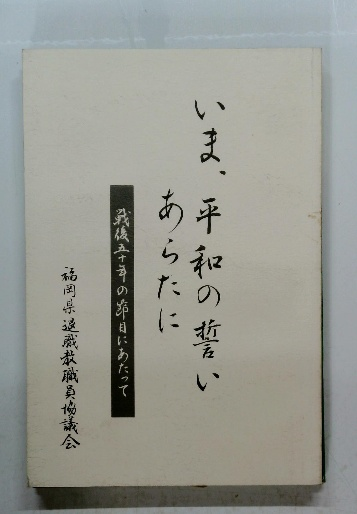 いま、平和の誓い
あらたに
戦後五十年の節目にあたって
福岡県退職教職員協議会